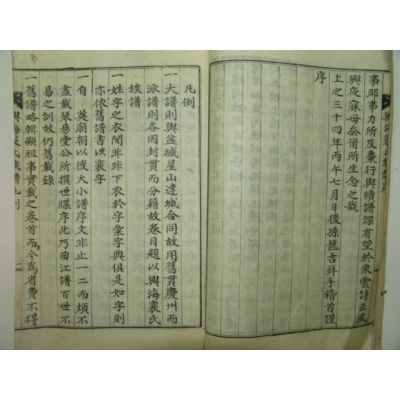 事耶事力所及兼行與續譜深有望於來雲詩云夙
興夜寐毋忝爾所生念之哉
上之三十四年丙午七月日後孫龍吉拜手稽首謹
序
凡例
一大譜則與盆城星山達城合同故用舊貫慶州而
派譜則各因封貫而分籍故卷目題以興海裵氏
族譜
一姓字之衣間非非下衣於字彙字與俱是如字則
亦依舊譜書以裵字
一自英廟朝以後大小譜序文非止一二而煩不
盡載琴易堂公所撰世牒序此乃曲江譜百世不
易之訓故仍舊載錄
一舊譜略輯顯祖事實載之卷首而今爲省費不得
興海裵氏族譜凡例